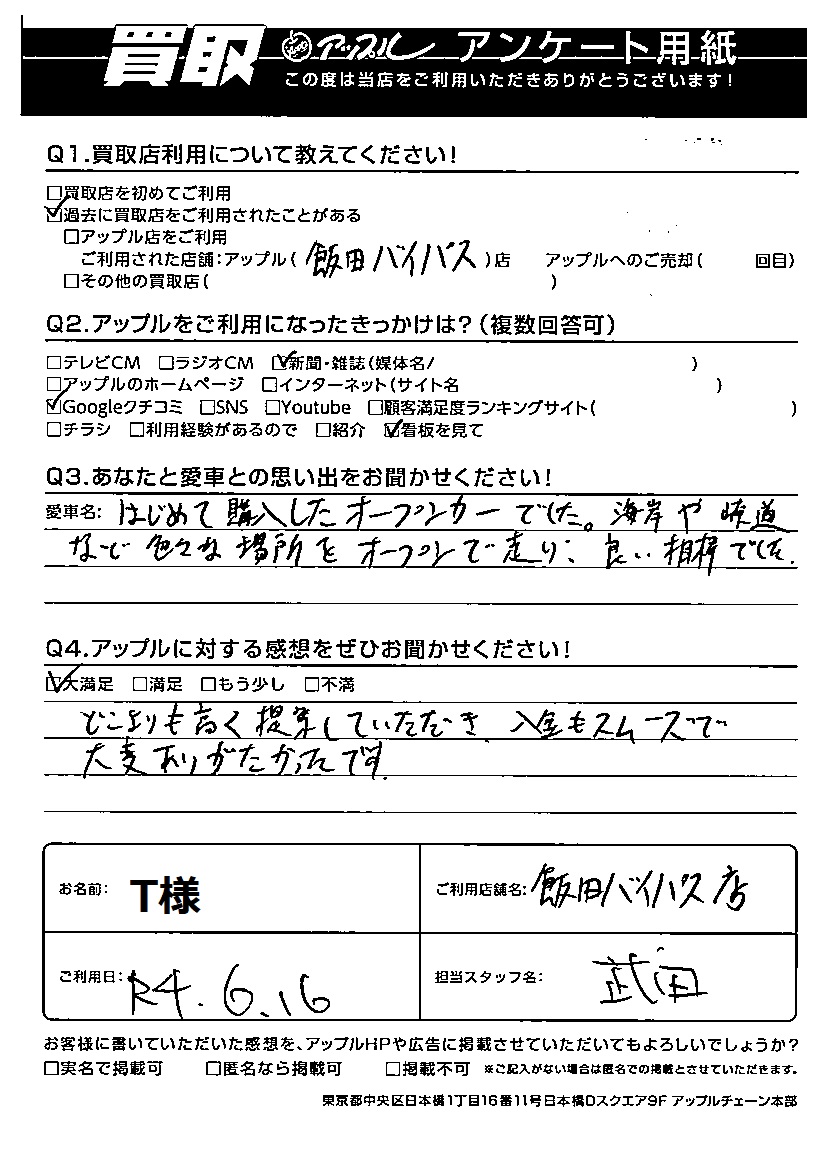 買取 アップル アンケート用紙
この度は当店をご利用いただきありがとうございます!
Q1.買取店利用について教えてください!
□買取店を初めてご利用
☑過去に買取店をご利用されたことがある
□アップル店をご利用
ご利用された店舗:アップル(飯田バイパス)店 アップルへのご売却( 回目)
□その他の買取店( )
Q2.アップルをご利用になったきっかけは?(複数回答可)
□テレビCM □ラジオCM ☑新聞・雑誌(媒体名/ )
□アップルのホームページ □インターネット(サイト名 )
☑Googleクチコミ □SNS □Youtube □顧客満足度ランキングサイト( )
□チラシ □利用経験があるので □紹介 ☑看板を見て
Q3.あなたと愛車との思い出をお聞かせください!
愛車名: はじめて購入したオープンカーでした。海岸や峠道
など色々な場所をオープンで走り、良い相棒でした.
Q4.アップルに対する感想をぜひお聞かせください!
☑大満足 □満足 □もう少し □不満
どこよりも高く提案していただき、入金もスムーズで
大変ありがたかったです.
お名前: T様
ご利用店舗名: 飯田バイパス店
ご利用日: R4.6.16
担当スタッフ名: 武田
お客様に書いていただいた感想を、アップルHPや広告に掲載させていただいてもよろしいでしょうか?
□実名で掲載可 □匿名なら掲載可 □掲載不可 ※ご記入がない場合は匿名での掲載とさせていただきます。
東京都中央区日本橋1丁目16番11号日本橋Dスクエア9F アップルチェーン本部